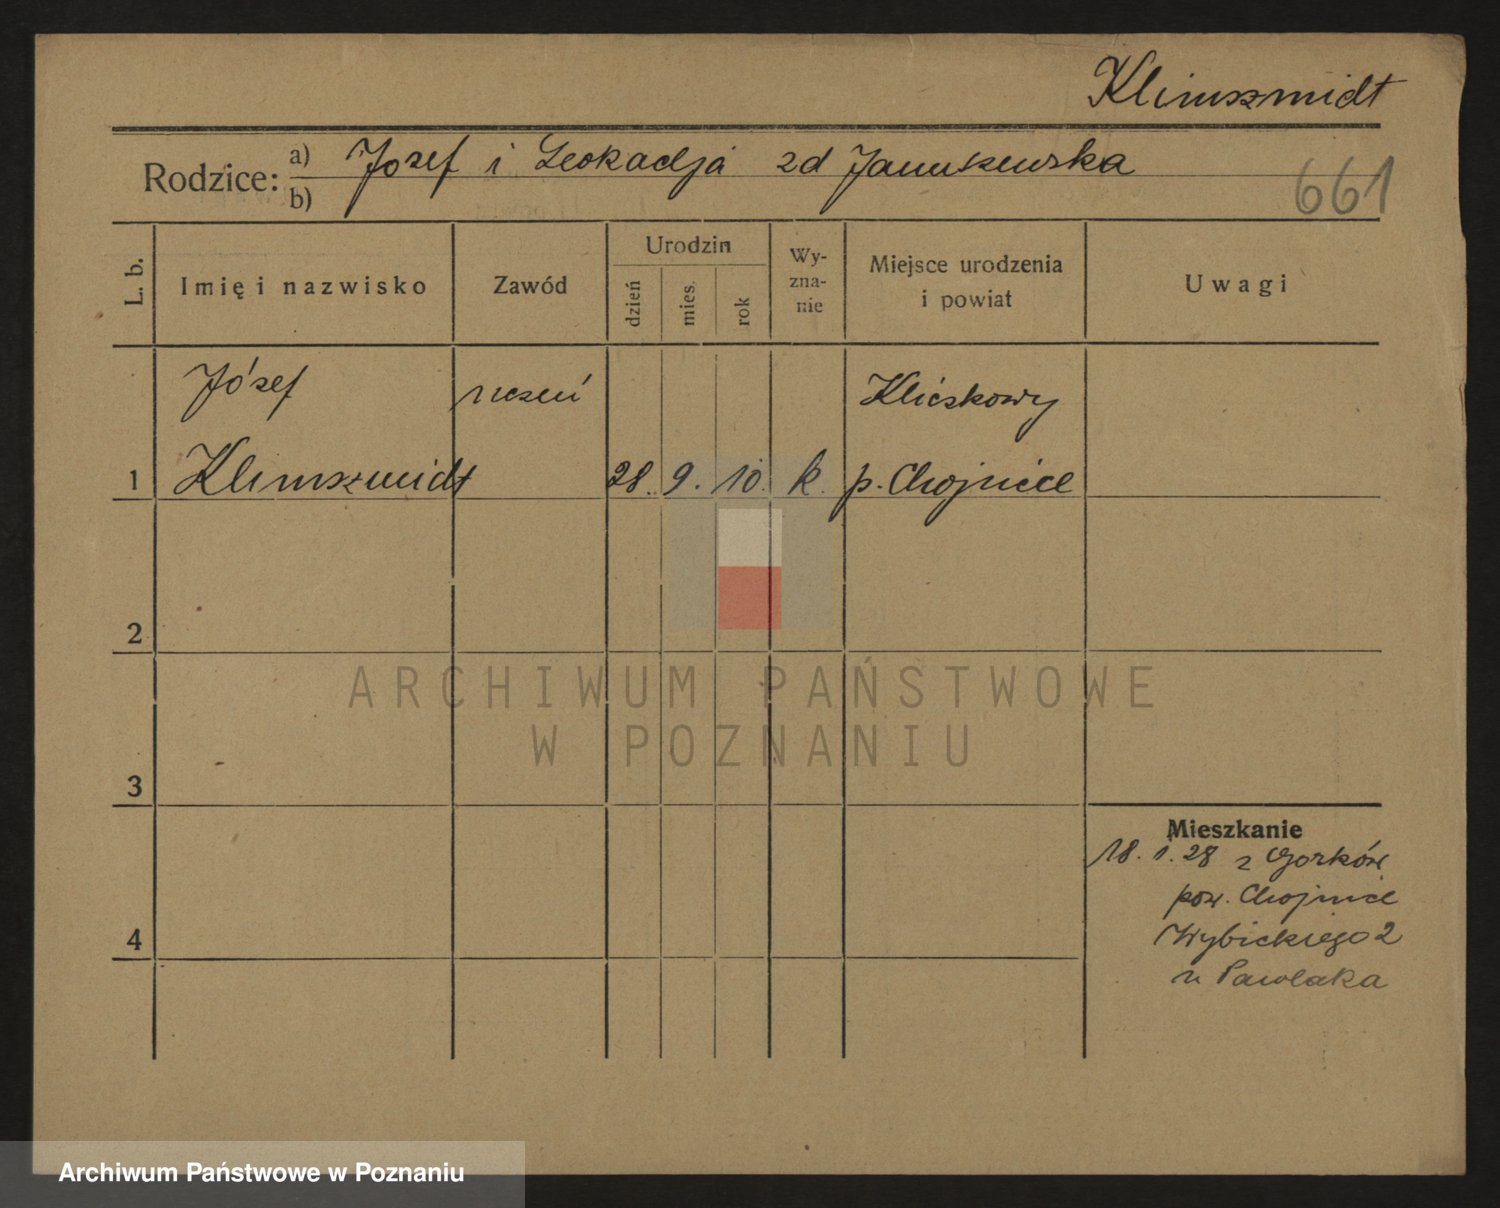 Klimszmidt
Rodzice: a) Józef i Leokadja zd Januszewska
b)
661
L. b.
Imię i nazwisko
Zawód
Urodzin
dzień
mies.
rok
Wy-
zna-
nie
Miejsce urodzenia
i powiat
Uwagi
Józef uczeń Kliczkowy
1 Klimszmidt 28. 9. 10. k. p. Chojnice
2
ARCHIWUM PAŃSTWOWE
W POZNANIU
3
Mieszkanie
18. 1. 28 z
pow. Chojnice
4
Wybickiego 2
u Pawlaka
Archiwum Państwowe w Poznaniu